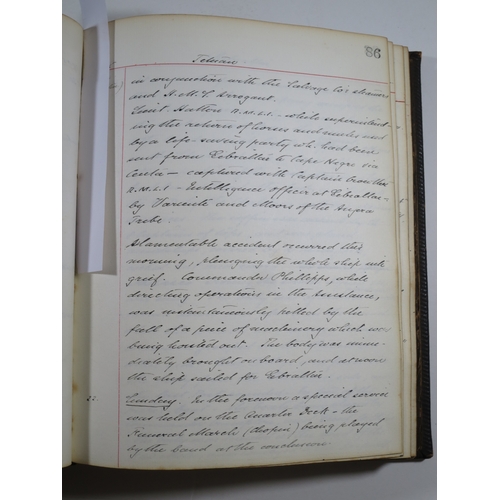 86
Tetuan
in conjunction with the Salvage Co's steamers
and H.M.S. Arrogant.
Lieut. Hatton R.M.L.I. - while superintend-
ing the return of horses and mules used
by a life-saving party who had been
sent from Gibraltar to Cape Negro via
Ceuta - captured with Captain Crowther
R.M.L.I. - Intelligence officer at Gibraltar -
by Valiente and Moors of the Anjera
Tribe.
A lamentable accident occurred this
morning, plunging the whole ship into
grief. Commander Phillipps, while
directing operations in the Assistance,
was instantaneously killed by the
fall of a piece of machinery which was
being hoisted out. The body was imme-
diately brought on board, and at noon
the ship sailed for Gibraltar.
22 Sunday. In the forenoon a special service
was held on the Quarter Deck - the
Funeral March (Chopin) being played
by the band at the conclusion.